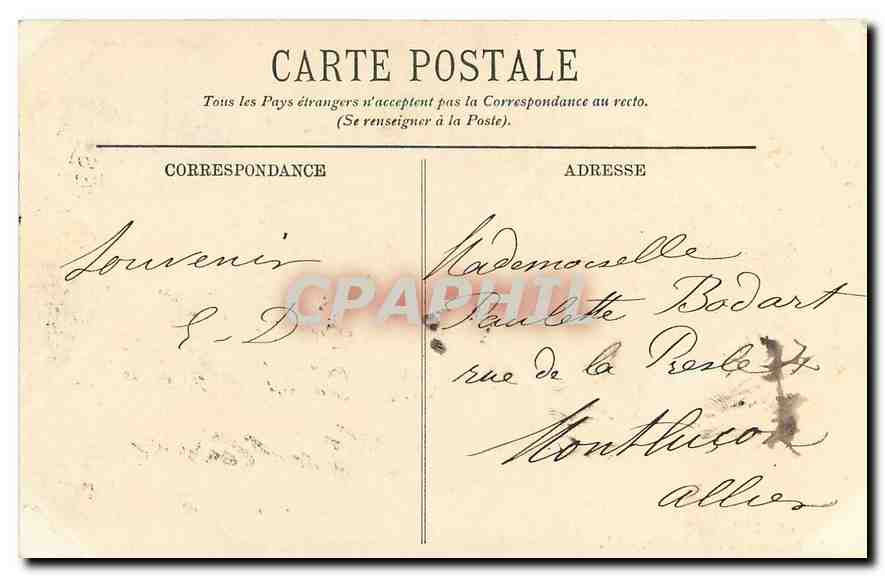 CARTE POSTALE
Tous les Pays étrangers n'acceptent pas la Correspondance au recto.
(Se renseigner à la Poste).
CORRESPONDANCE
ADRESSE
Souvenir
E-D
Mademoiselle
Paulette Bodart
rue de la Presle
Montluçon
Allier
CPAPHIL